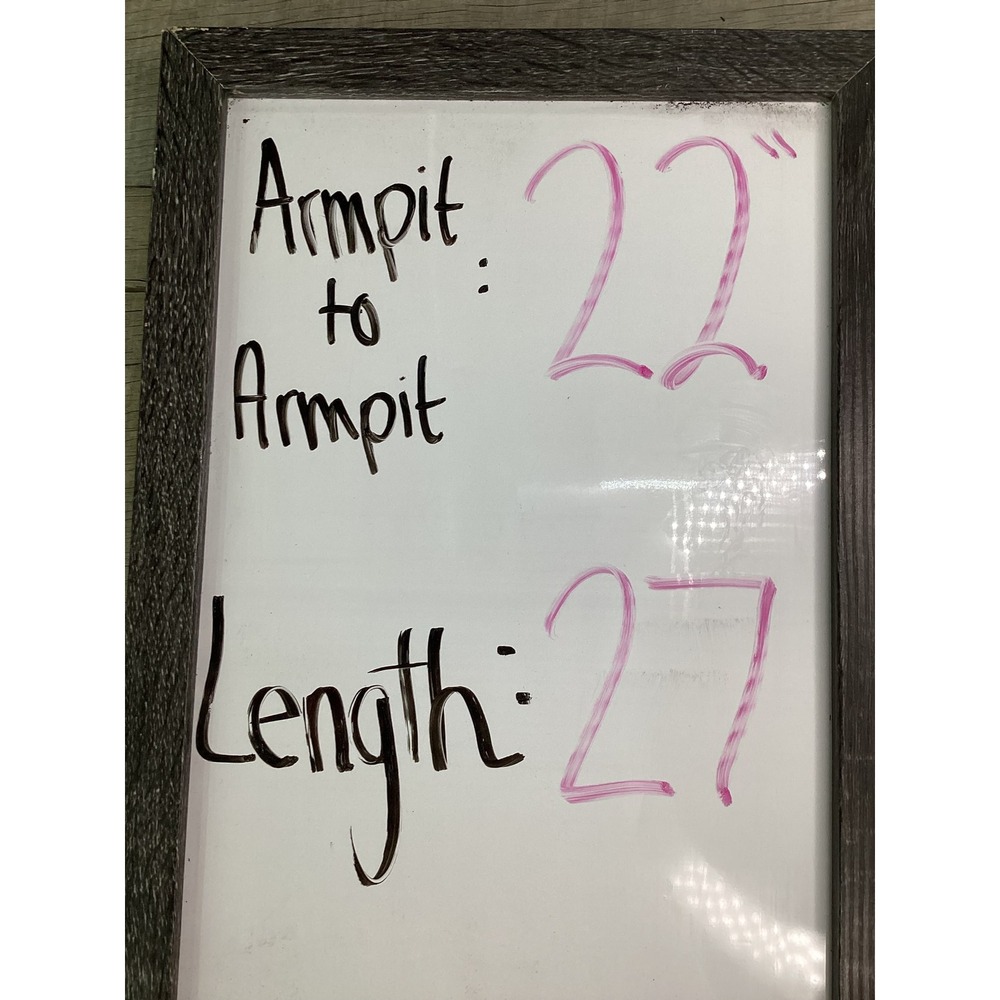 Armpit
to
Armpit : 22"
Length: 27